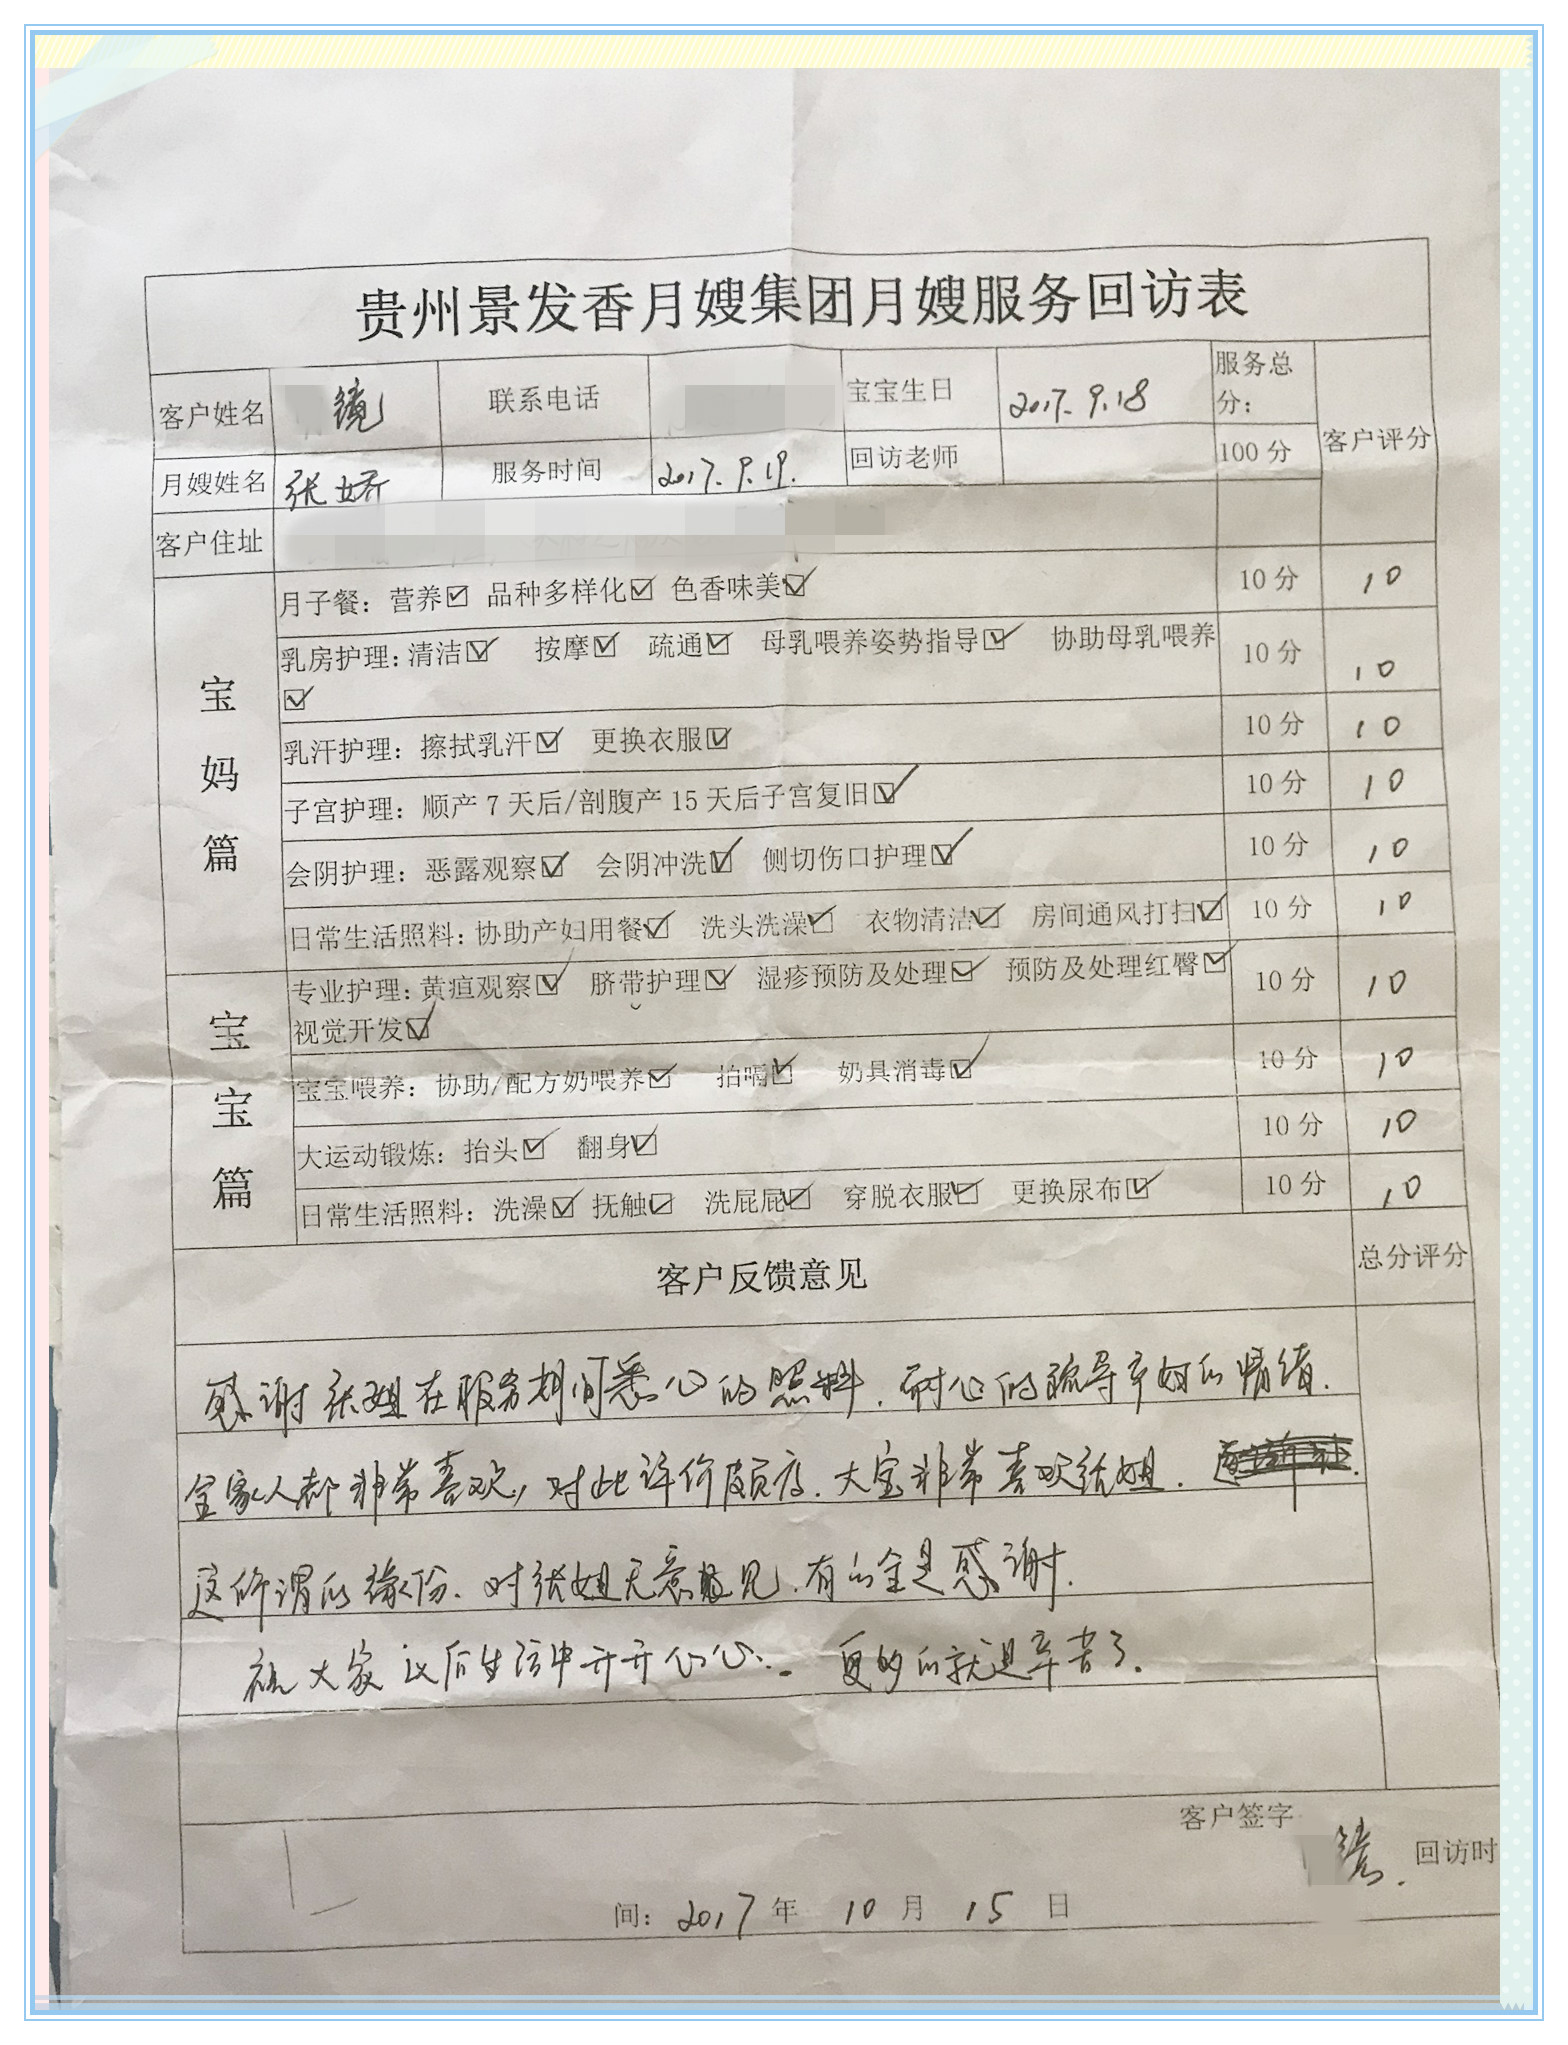 贵州景发香月嫂集团月嫂服务回访表
客户姓名 镜 联系电话 宝宝生日 2017.9.18 服务总分: 客户评分
月嫂姓名 张娇 服务时间 2017.9.19. 回访老师 100分
客户住址
宝妈篇
月子餐：营养☑ 品种多样化☑ 色香味美☑ 10分 10
乳房护理：清洁☑ 按摩☑ 疏通☑ 母乳喂养姿势指导☑ 协助母乳喂养 10分 10
☑
乳汗护理：擦拭乳汗☑ 更换衣服☑ 10分 10
子宫护理：顺产7天后/剖腹产15天后子宫复旧☑ 10分 10
会阴护理：恶露观察☑ 会阴冲洗☑ 侧切伤口护理☑ 10分 10
日常生活照料：协助产妇用餐☑ 洗头洗澡☑ 衣物清洁☑ 房间通风打扫☑ 10分 10
宝宝篇
专业护理：黄疸观察☑ 脐带护理☑ 湿疹预防及处理☑ 预防及处理红臀☑ 10分 10
视觉开发☑
宝宝喂养：协助/配方奶喂养☑ 拍嗝☑ 奶具消毒☑ 10分 10
大运动锻炼：抬头☑ 翻身☑ 10分 10
日常生活照料：洗澡☑ 抚触☑ 洗屁屁☑ 穿脱衣服☑ 更换尿布☑ 10分 10
客户反馈意见 总分评分
感谢张姐在服务期间悉心的照料.耐心的疏导产妇的情绪.
全家人都非常喜欢,对此评价颇高.大宝非常喜欢张姐.
这所谓的缘份.对张姐无意见.有的全是感谢.
祝大家以后生活中开开心心.. 更多的就是辛苦了.
客户签字 镜. 回访时
间：2017年 10月 15日